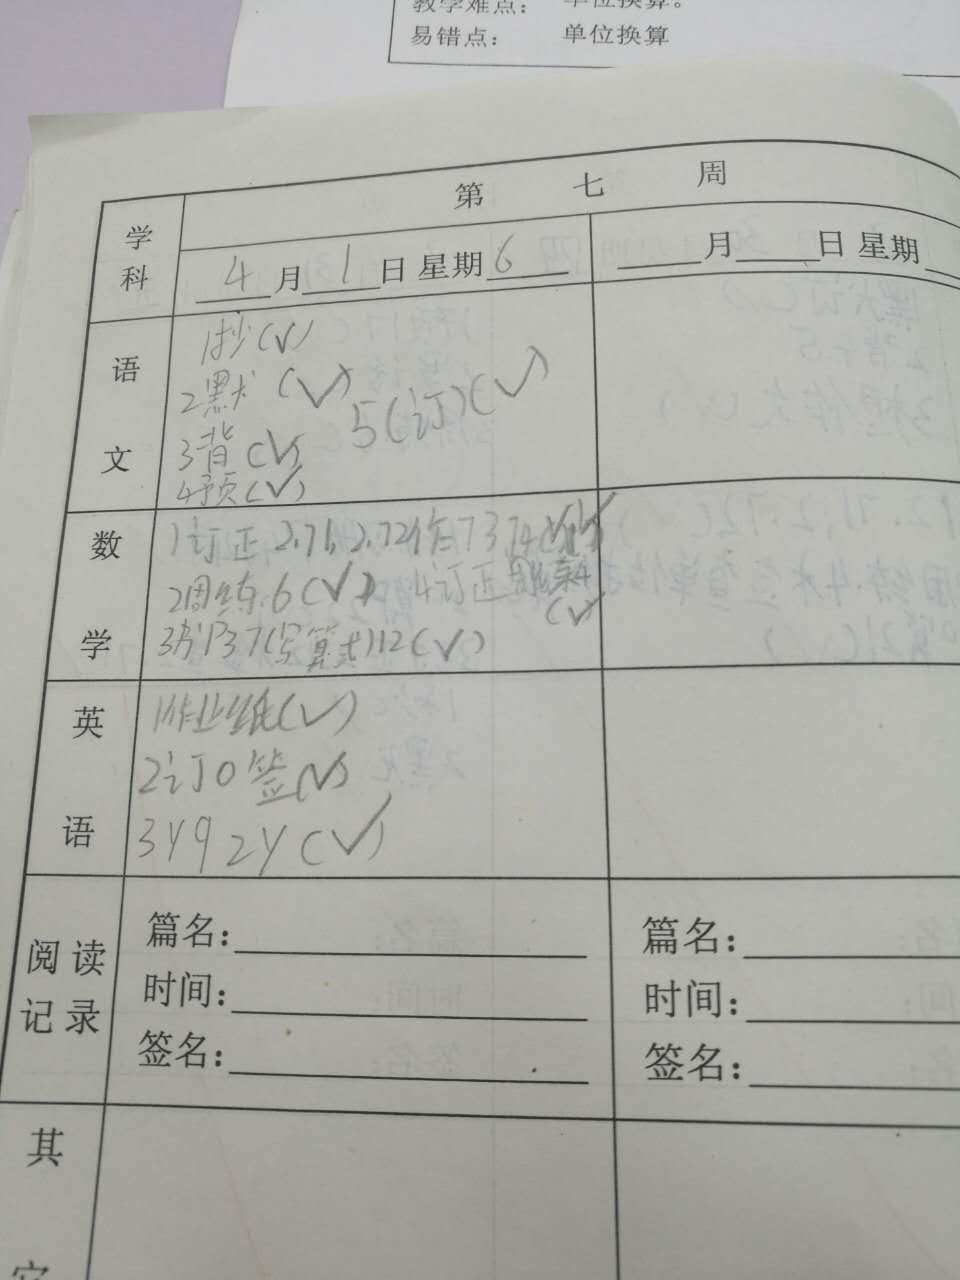 教学难点： 单位换算。
易错点： 单位换算
第 七 周
学科
4月1日 星期6
月 日 星期
语文
1抄(√)
2默(√)
5(订)(√)
3背(√)
4预(√)
数学
1订正2.71,2.72
2周练.6(√)
4订正周练4
(√)
3书P37(写算式)12(√)
英语
1作业纸(√)
2订0签(√)
3Y9 2Y(√)
阅读记录
篇名：
时间：
签名：
篇名：
时间：
签名：
其